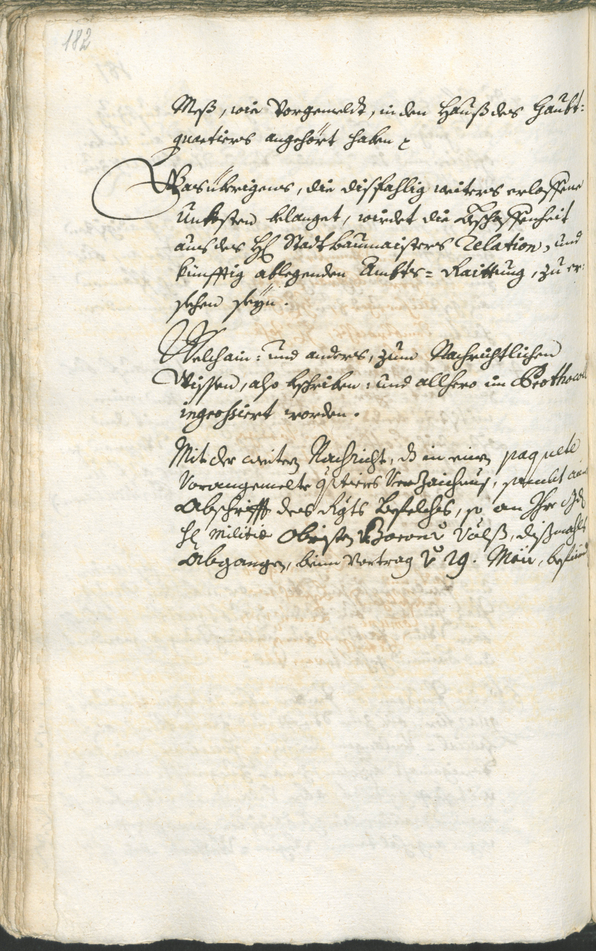 182
Meß, wie Vorgemeldt, in den Hauß des Haubt-
quartiers angehört haben
Was übrigens, die disfahlig weiters erlossene
Unkosten belanget, würdet die Beschaffenheit
aus des H: Stattbaumaisters Relation, und
künfftig ablegenden Ambts-Raittung, zu er-
sehen seyn.
Welch ain: und anderes, zum Nachrichtlichen
Wissen, also beschriben: und allhero im Prothocoll
ingrossiert worden.
Mit der weitern Nachricht, dß in einen paquete
Vorangemelte Verzaichnus, sambt
Abschrifft des Befelches, so an Ihr
H: militiæ Obristen Baron Völß, dißmahls
Abgangen, beim Vortrag 29. May,